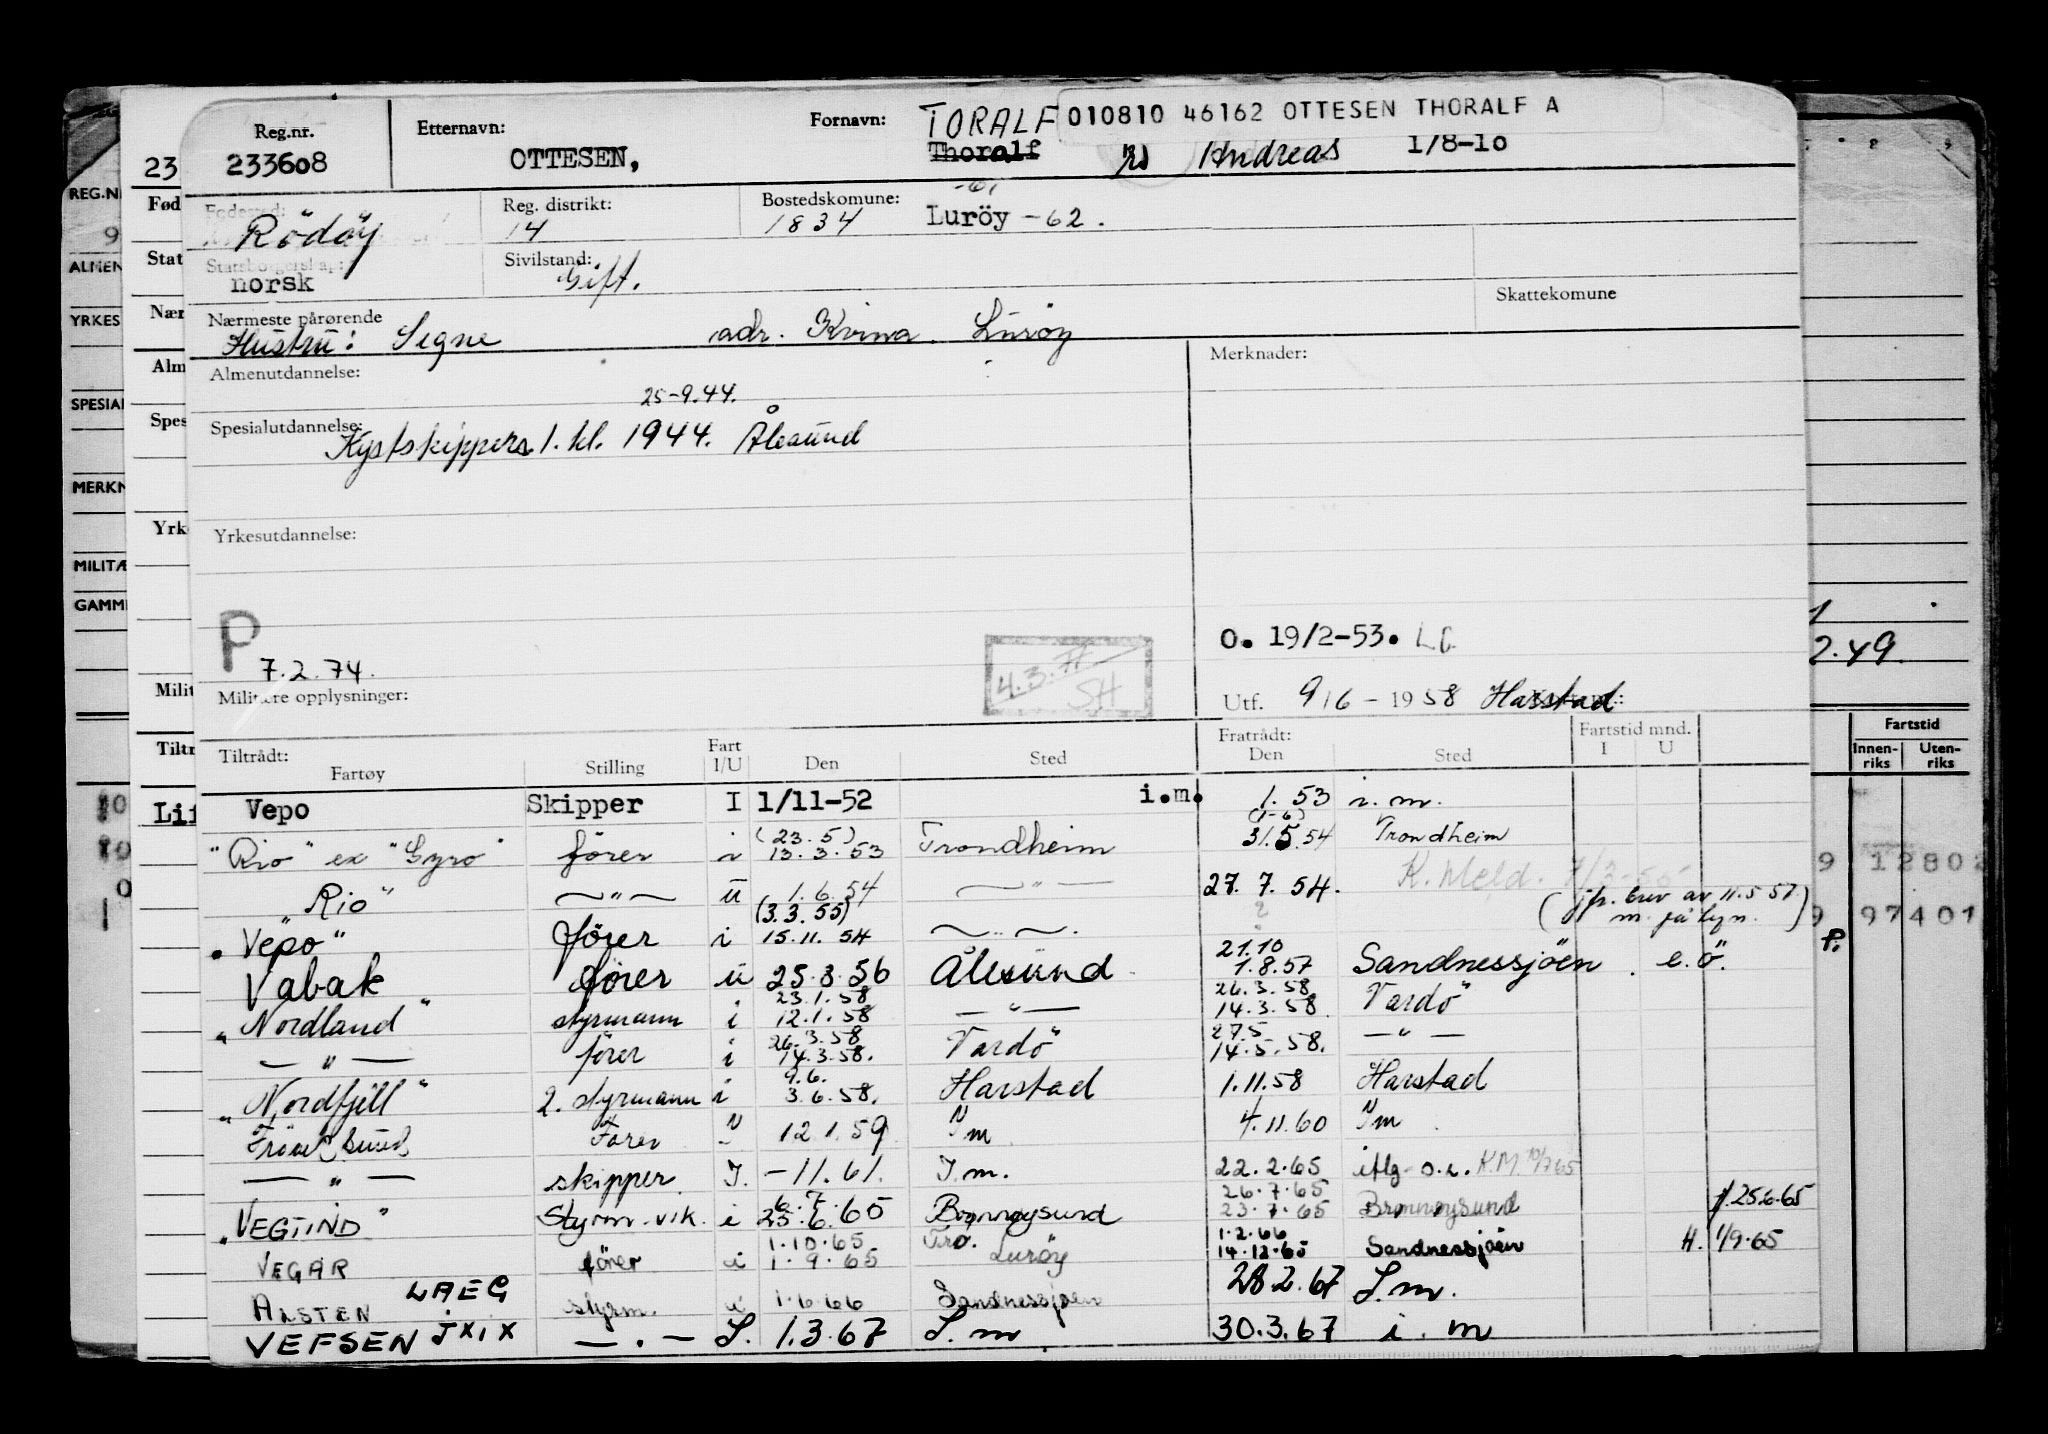 Reg.nr. Etternavn: Fornavn: TORALF 010810 46162 OTTESEN THORALF A
23 233608 OTTESEN, Thoralf Andreas 1/8-10
REG.N Fød Fødested: Reg. distrikt: Bostedskomune: -61
9 Rödöy 14 1834 Luröy -62.
ALMEN Stat Statsborgerskap: Sivilstand:
norsk Gift. Skattekomune
YRKES Nær Nærmeste pårørende
Hustru: Signe adr. Kvina Luröy
Alm Almenutdannelse: Merknader:
25-9.44.
SPESIAL Spes Spesialutdannelse:
Kystskippers 1. kl. 1944. Ålesund
MERKN
Yrk Yrkesutdannelse:
MILITÆ
GAMM
P O. 19/2-53.
7.2.74. 4.3.71 SH 2.49.
Milit Militære opplysninger: Utf. 9/6 - 1958 Harstad
Tiltr Tiltrådt: Fart Fratrådt: Fartstid mnd. Fartstid
Fartøy Stilling I/U Den Sted Den Sted I U Innen-riks Uten-riks
Vepo Skipper I 1/11-52 i.m. 1.53 i.m.
(23.5) (1-6)
"Rio" ex "Gyro" fører i 13.3.53 Trondheim 31.5.54 Trondheim
K. Meld. 7/3-55 9 12802
"Rio" —"— u 1.6.54 —"— 27.7.54.
(jfr. brev av 11.5.57
(3.3.55) 9 97401
"Vepo" fører i 15.11.54 —"—.
21.10
Vabak fører u 25.3.56 Ålesund 1.8.57 Sandnessjöen. e.ö.
23.1.58 26.3.58
"Nordland" styrmann i 12.1.58 —"— 14.3.58 Vardö
26.3.58 27.5
—"— fører i 14.3.58. Vardö 14.5.58. —"—
9.6.
"Nordfjell" 2. styrmann i 3.6.58. Harstad 1.11.58 Harstad
Fører " 12.1.59 Im 4.11.60 Im
—"— skipper I. -11.61. I.m. 22.2.65 iflg. o.r. K.M. 10/7 65
6.7 26.7.65
"VEGTIND" Styrm. vik. i 25.6.65 Brønnøysund 23.7.65 Brønnøysund 25.6.65
1.10.65 Tro. 1.2.66
VEGAR fører i 1.9.65 Luröy 14.12.65 Sandnessjøen H. 1/9.65
ALSTEN LAEG styrm. u 1.6.66 Sandnessjøen 28.2.67 I.m.
VEFSEN JXIX —.— I. 1.3.67 I.m 30.3.67 i.m